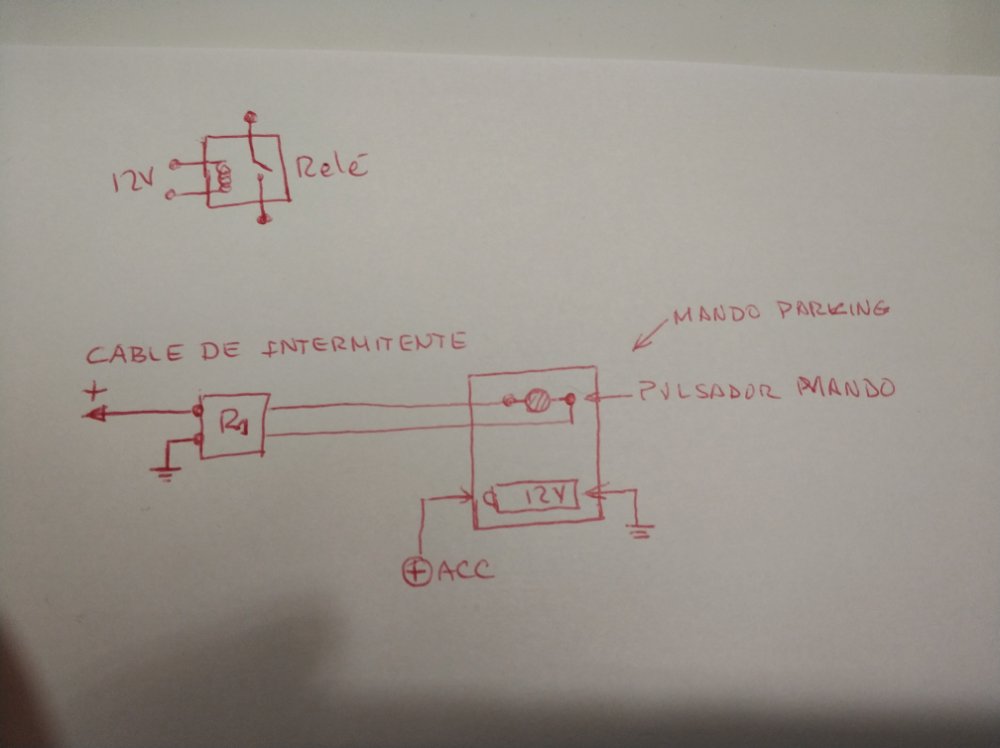 12V
Relé
MANDO PARKING
CABLE DE INTERMITENTE
PULSADOR MANDO
+
R1
12V
+ ACC